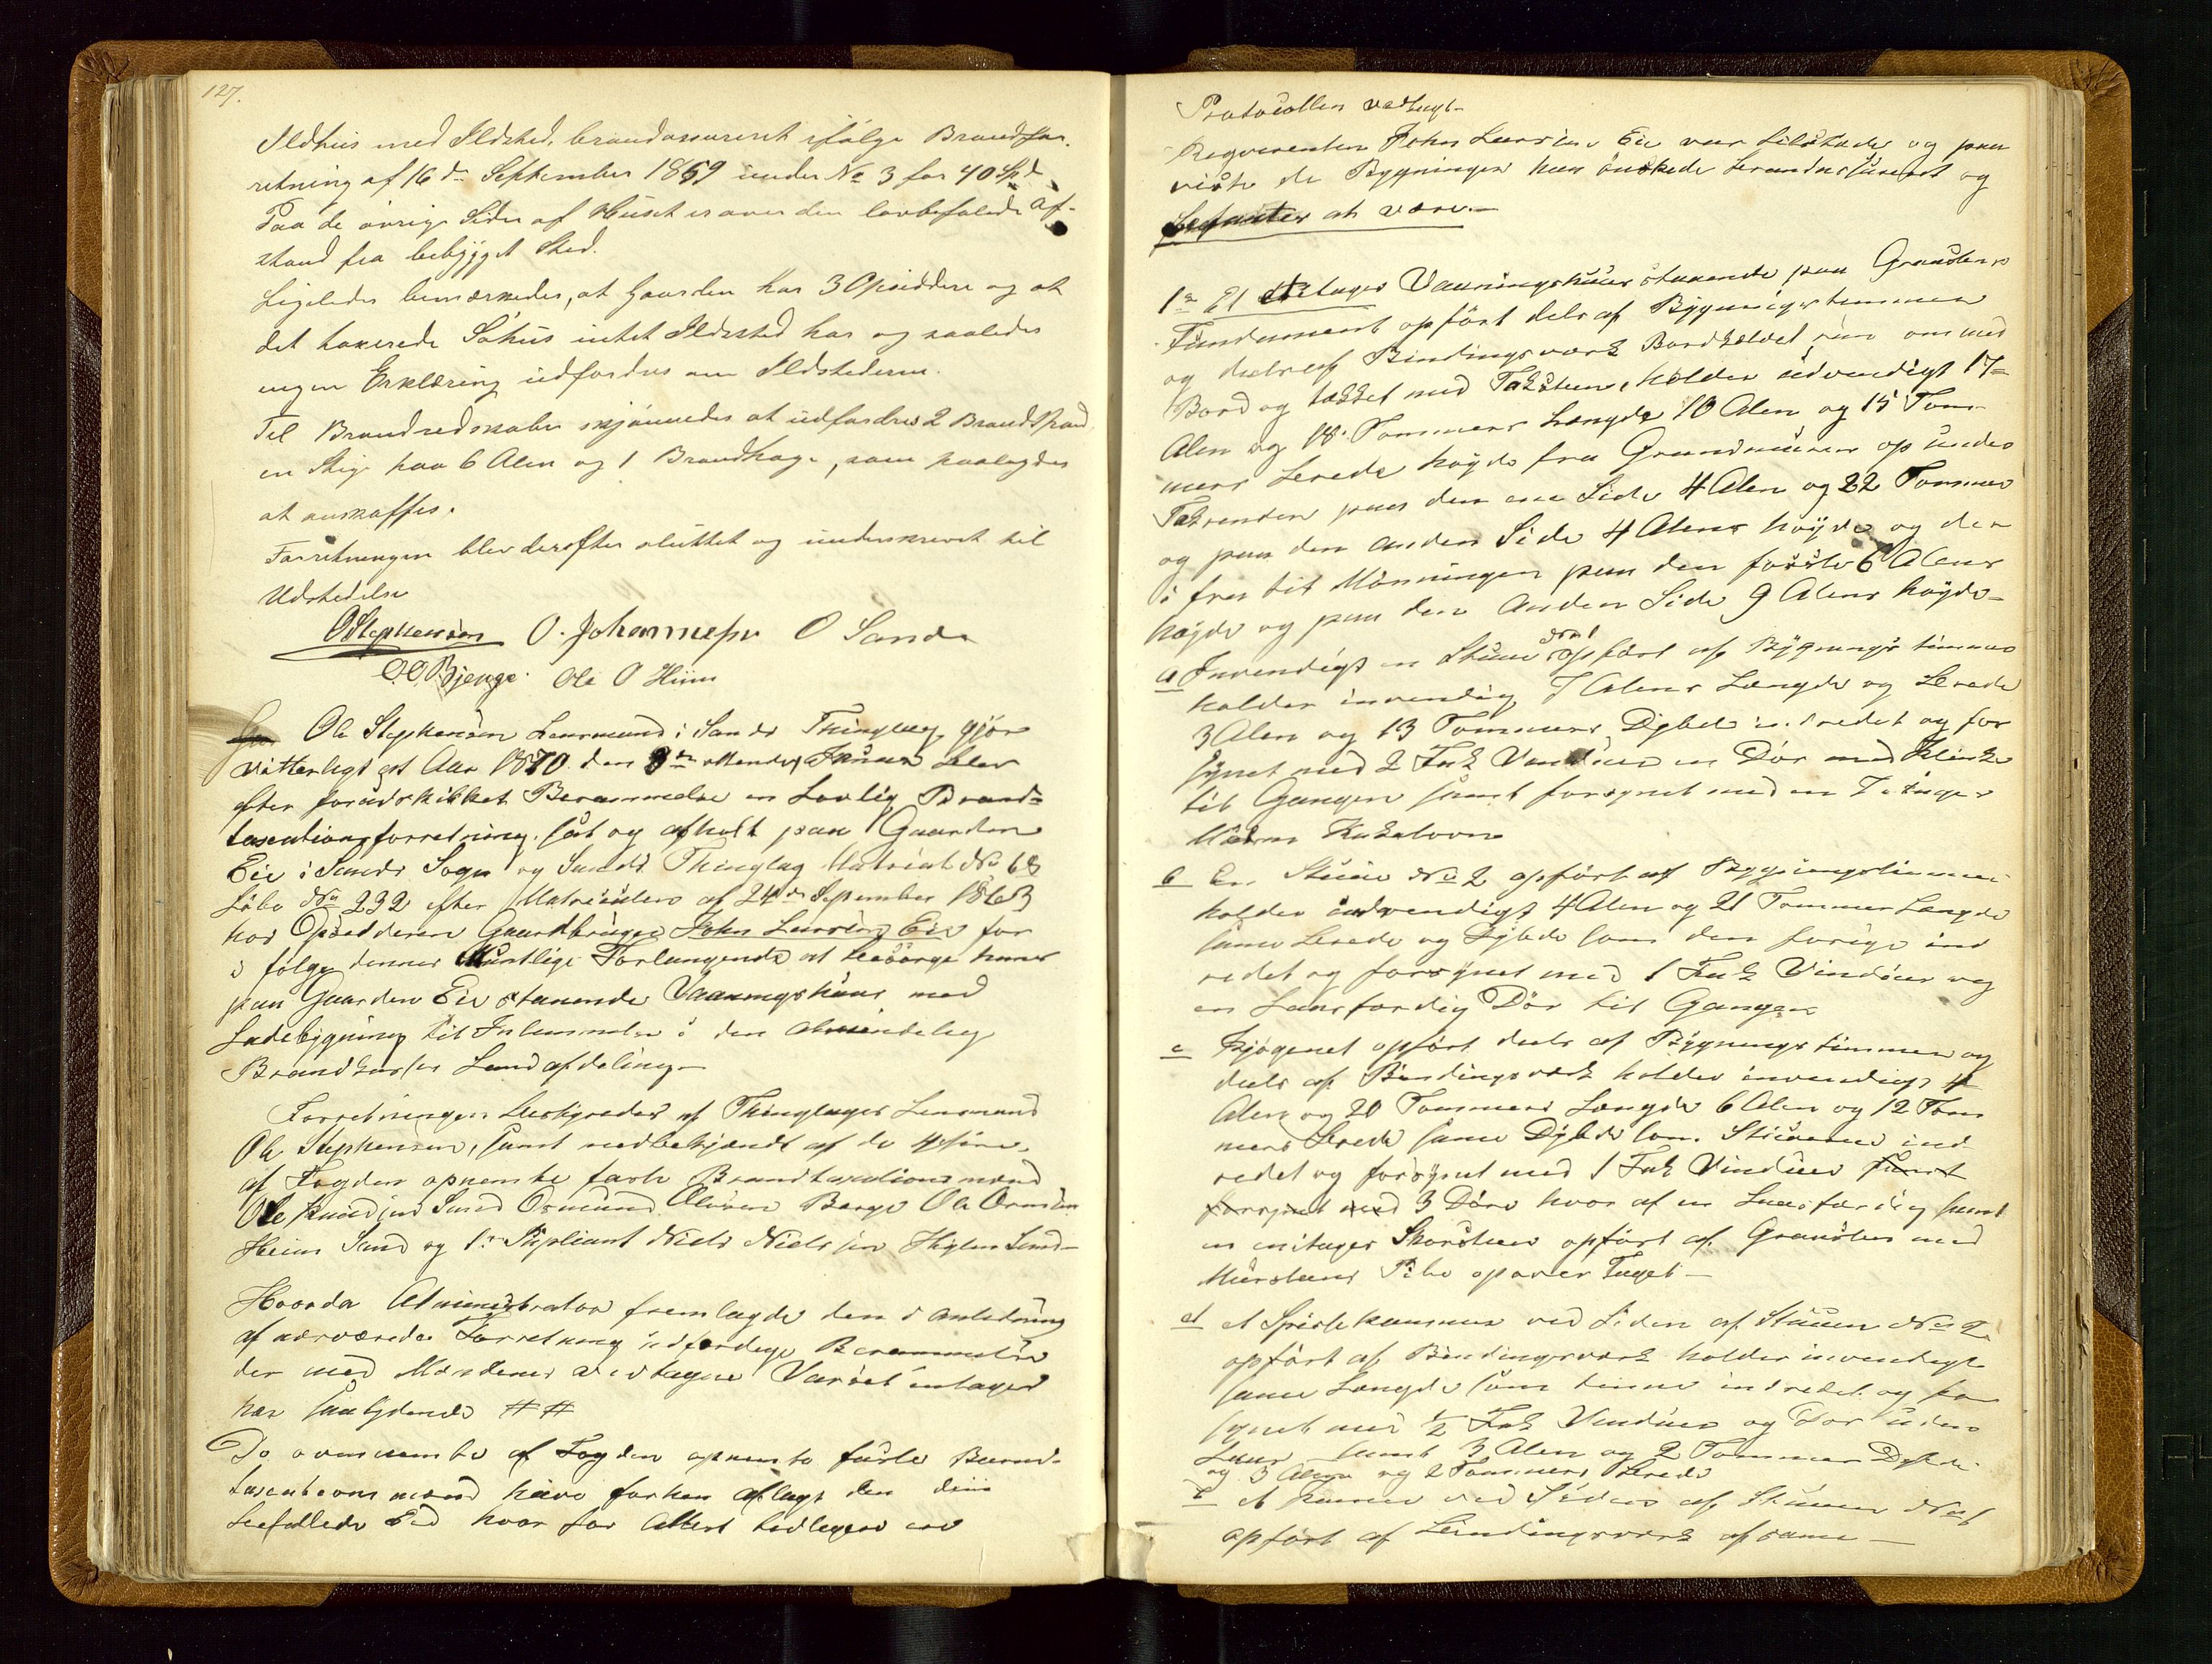 127.
Ildhus med Ildsted, brandassureret ifølge Brandfor-
retning af 16de September 1869 under No 3 for 40 Spd.
Paa de øvrige Sider af Huset er over den lovbefalede Af-
stand fra bebygget Sted.
Ligeledes bemærkedes, at Gaarden har 3 Opsiddere og at
det taxerede Søhus intet Ildsted har og saaledes
ingen Erklæring udfordres om Ildstederne.
Til Brandredskaber skjønnedes at udfordres 2 Brandspand,
en Stige paa 6 Alen og 1 Brandhage, som paalagdes
at anskaffes.
Forretningen blev derefter sluttet og underskrevet til
Udstedelse
OStephensen O. Johannesen O Sande
OOBjerge Ole O Hiim
Ole Stephensen Lensmand i Sands Thinglag gjør
vitterligt at Aar 1870 den 8de ottende Januar blev
efter forudskikket Berammelse en Lovlig Brand-
taxationsforretning sat og afholt paa Gaarden
Eie i Sands Sogn og Sands Thinglag Matrikul No 68
Løbe No 232 efter Matriculen af 24de September 1863
hos Opsidderen Gaardbruger John Larsen Eie for
i følge dennes Muntlige Forlangende at besørge hans
paa Gaarden Eie staaende Vaaningshuus med
Ladebygning til Indlemmelse i den almindelig
Brandkasses Landafdeling.—
Forretningen bestyredes af Thinglagets Lensmand
Ole Stephensen, samt medbetjændt af de 4 fire
af Fogden opnevnte faste Brandtaxationsmænd
Ole Knudsen Sand Osmund Olesen Berge Ole Ormsen
Heim Sand og 1te Supliant Niels Nielsen Sand—
Hvorda Administrator fremlagde den i Anledning
af nærværende Forretning udferdige Berammelse
der med Mændenes vedtagne Varsel intages
her saalydende ##
De ovennevnte af Fogden opnevnte faste Brand-
taxationsmænd have forhen aflagt den
befallede Ed hvor for Attest tidligere er
Protocollen vedtagt—
Reqvirenten John Larsen Eie var tilstæde og paa
viste de Bygninger han ønskede brandassureret og
befantes at være.—
1te Et etages Vaaningshuus staaende paa Graasteens
Fundament opført dels af Bygningstømmer
og deels af Bindingsværk Bordklædet rundt om med
Bord og tækket med Taksteen, holder udvendigt 17
Alen og 18 Tommers Længde 10 Alen og 15 Tom-
mers Brede høyde fra Grundmuren op under
Takrenden paa den ene Side 4 Alen og 22 Tommer
og paa den anden Side 4 Alens høyde og der
i fra til Mønningen paa den første 6 Alens
høyde og paa den anden Side 9 Alens høyde—
a Invendigt en Stue No 1 opført af Bygningstømmer
holder invendig 7 Alens Længde og Brede
3 Alen og 13 Tommers Dybde indredet og for
synet med 2 Fak Vinduer en Dør med Klinke
til Gangen samt forsynet med en 2 etages
Kakelovn
b En Stue No 2 opført af Bygningstømmer
holder indvendigt 4 Alen og 21 Tommer Længde
samme Brede og Dybde som den forige ind
redet og forsynet med 1 Fak Vinduer og
en Laasfærdig Dør til Gangen
c Kjøgenet opført deels af Bygningstømmer og
deels af Bindingsværk holder invendigt 4
Alen og 20 Tommers Længde 6 Alen og 12 Tom
mers Brede samme Dybde som Stuerne ind
redet og forsynet med 1 Fak Vinduer samt
forsynet med 3 Døre hvor af en Laasfærdig samt
en enetages Skorsteen opført af Graasteen med
Muursteens Pibe op over Taget—
d et Spisekammer ved Siden af Stuen No 2
opført af Bindingsværk holder invendigt
samme Længde som denne indredet og for
synet med ½ Fak Vinduer og Dør uden
Laas samt 3 Alen og 2 Tommer Dybde
og 3 Alen og 2 Tommers Brede
e et kammer ved Siden af Stuen No 1
opført af Bindingsværk af samme—